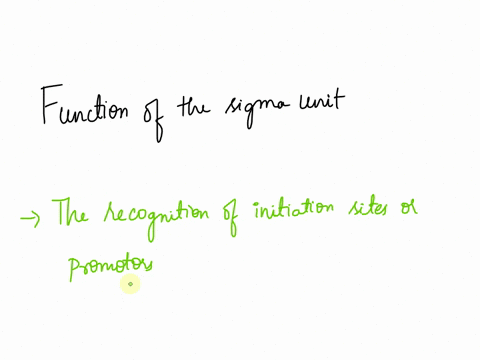 Function of the sigma unit
→ The recognition of initiation sites or
promotors